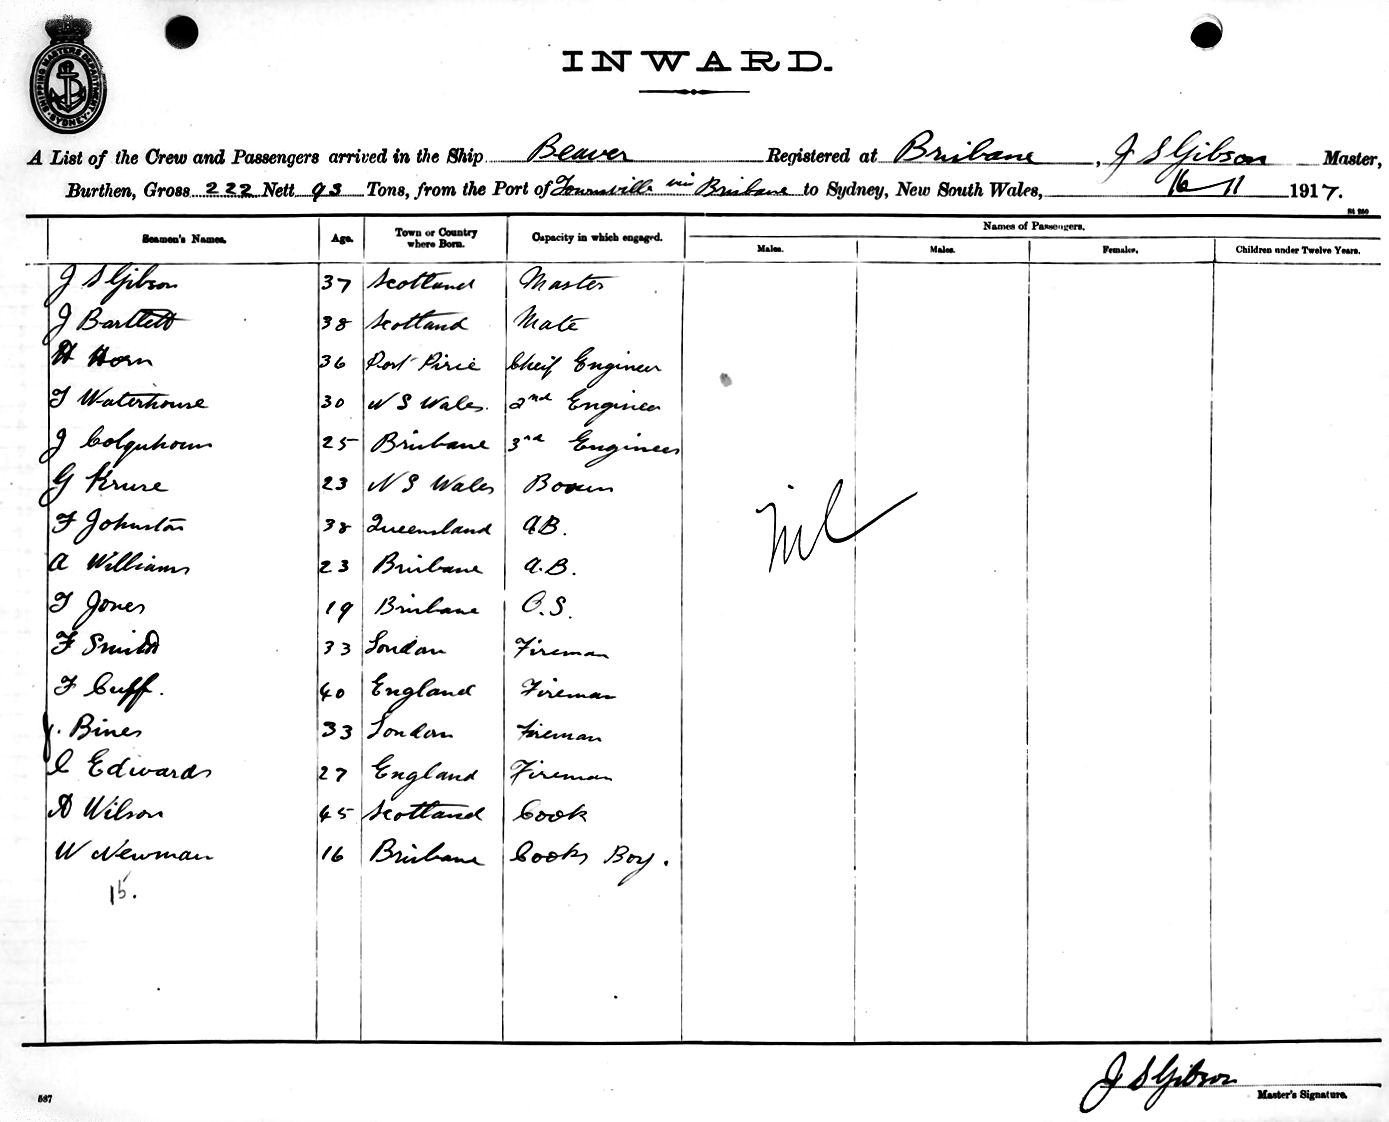 SHIPPING MASTER'S DEPARTMENT SYDNEY
INWARD.
A List of the Crew and Passengers arrived in the Ship Beaver Registered at Brisbane, J S Gibson Master,
Burthen, Gross 222 Nett 93 Tons, from the Port of Townsville via Brisbane to Sydney, New South Wales, 16 11 1917.
Seamen's Names. Age. Town or Country where Born. Capacity in which engaged. Names of Passengers.
Males. Males. Females. Children under Twelve Years.
J S Gibson 37 Scotland Master
J Bartlett 38 Scotland Mate
H Horn 36 Port Pirie Cheif Engineer
T Waterhouse 30 N S Wales. 2nd Engineer
J Colquhoun 25 Brisbane 3rd Engineer
G Kruse 23 N S Wales Bosun
F Johnston 38 Queensland A.B.
nil
A Williams 23 Brisbane A.B.
T Jones 19 Brisbane O.S.
F Smith 33 London Fireman
F Cuff. 40 England Fireman
J. Bines 33 London Fireman
C Edwards 27 England Fireman
A Wilson 45 Scotland Cook
W Newman 16 Brisbane Cooks Boy.
15.
J S Gibson
Master's Signature.
587